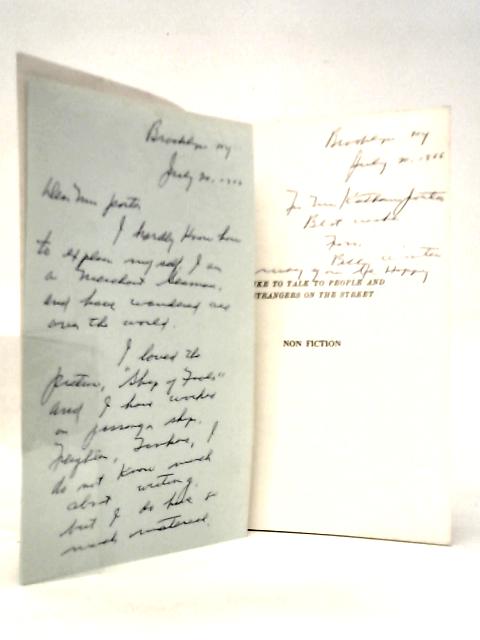 Brooklyn NY
July 20, 1966
Dear Mrs Porter
I hardly Know how
to explain myself I am
a Merchant Seaman,
and have wandered all
over the world.
I loved the
picture, "Ship of Fools"
and I have worked
on passenger ship,
Freighters, Tankers, I
do not Know much
about writing.
but I do have so
much material.
Brooklyn NY
July 20, 1966
To Mrs Katherine Porter
Best wishes
From
Billy
may your life Happy
IKE TO TALK TO PEOPLE AND
STRANGERS ON THE STREET
NON FICTION